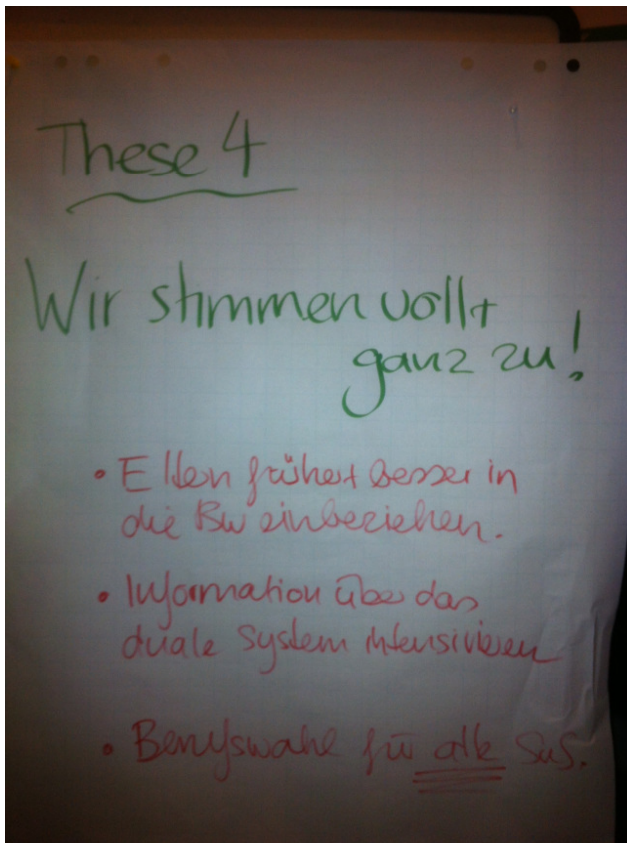 These 4
Wir stimmen voll +
ganz zu!
• Eltern früher + besser in
die BW einbeziehen.
• Information über das
duale System intensivieren
• Berufswahl für alle SuS.